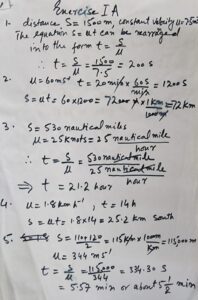 Exercise 1A
1. distance S = 1500 m, constant velocity u = 7.5 m
The equation S = ut can be rearranged
into the form t = S/u
∴ t = S/u = 1500/7.5 = 200 s
2. u = 60 ms⁻¹ t = 20 min × 60 s/min = 1200 s
S = ut = 60 × 1200 = 72000 m × 1 km/1000 m = 72 km
3. S = 530 nautical miles
u = 25 knots = 25 nautical mile/hour
∴ t = S/u = 530 nautical mile / 25 nautical mile/hour
⇒ t = 21.2 hour
4. u = 1.8 km h⁻¹, t = 14 h
S = ut = 1.8 × 14 = 25.2 km south
5. S = 110+120/2 = 115 km × 1000 m/km = 115000 m
u = 344 ms⁻¹
t = S/u = 115000/344 = 334.30 s
= 5.57 min or about 5 1/2 min